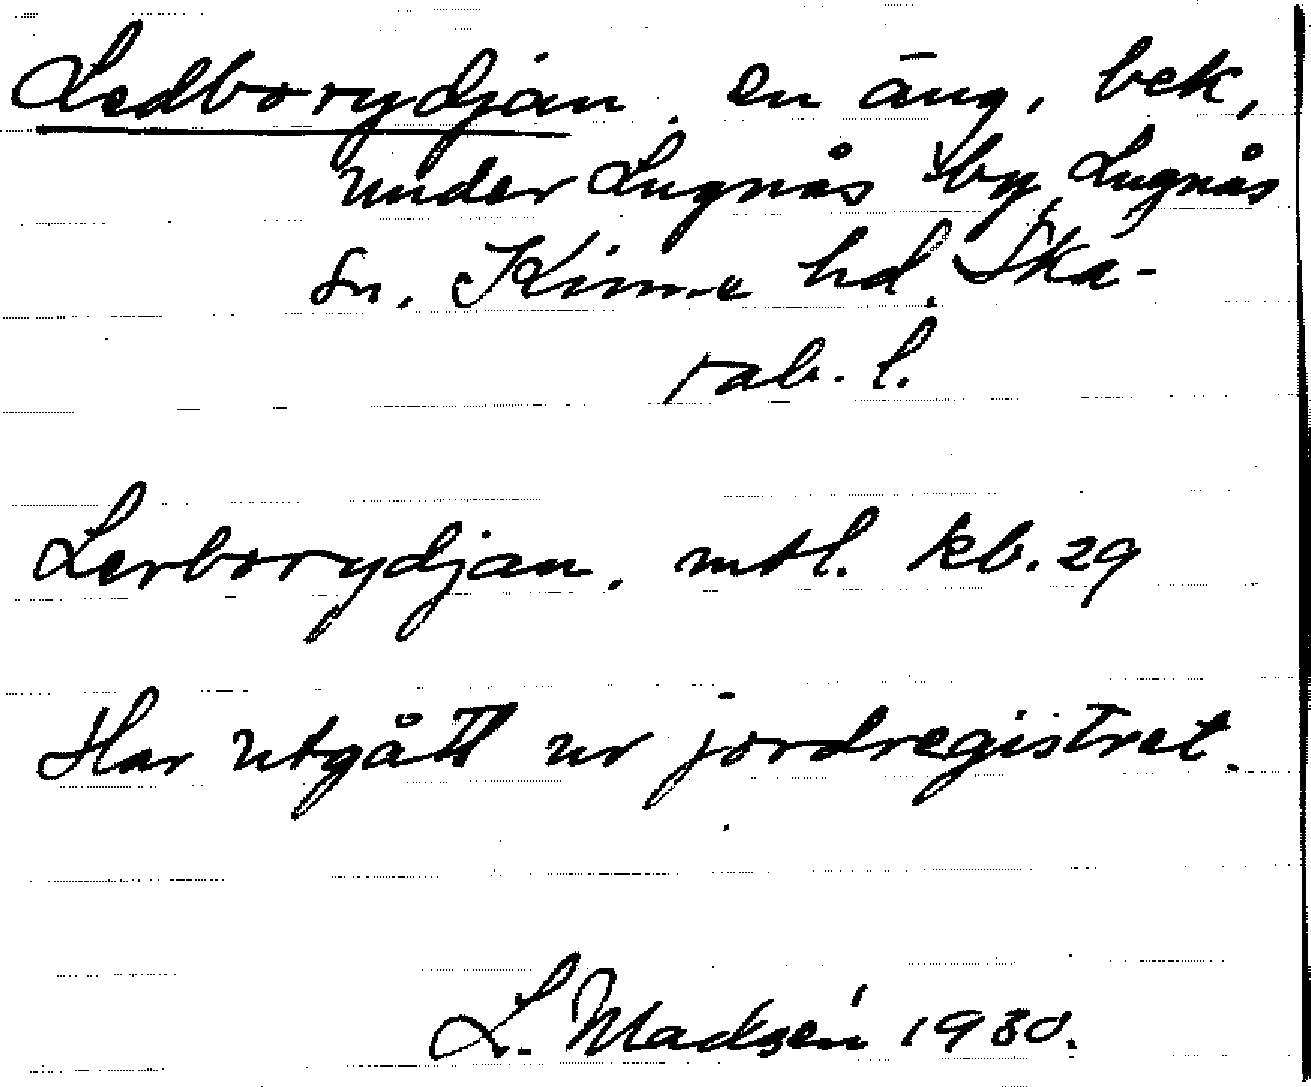 Ledborydjan. en äng, bek,
under Lugnås by Lugnås
sn. Kinne hd. Ska-
rab. l.
Lerborydjan. mtl. kb. 29
Har utgått ur jordregistret.
L. Madsén 1930.